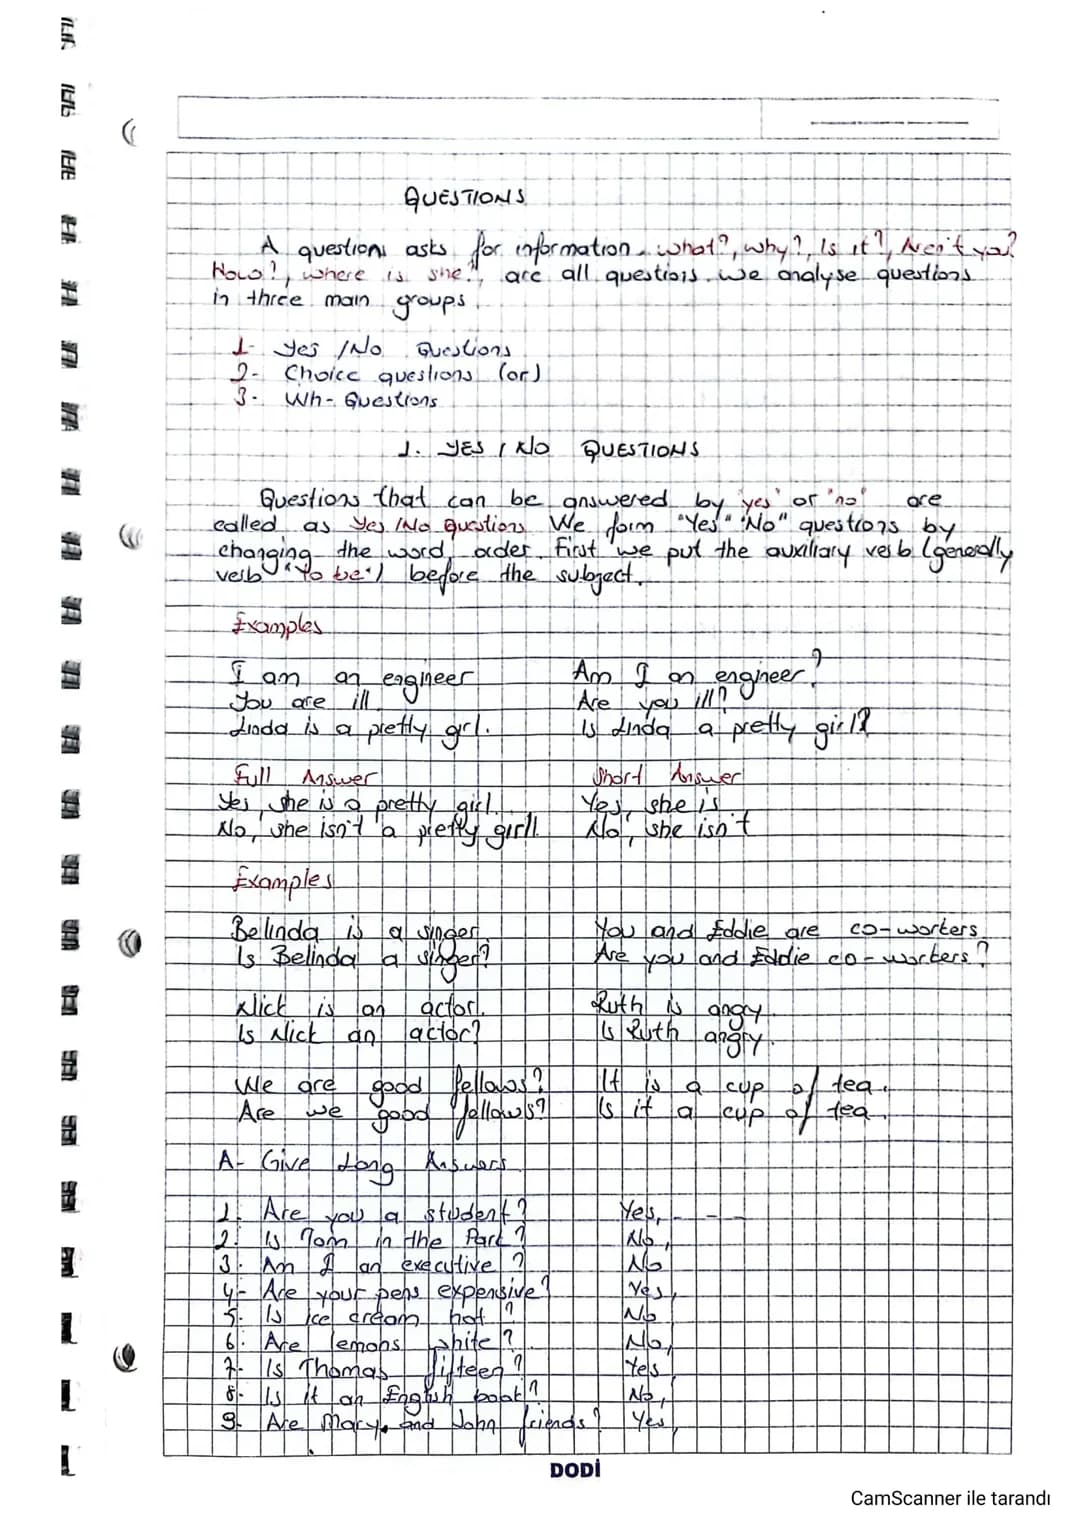 QUESTIONS
A questions asks for information. what?, why?, Is it?,
How?, where is she?, are all questions. we analyse questions
in three main groups.
1- Yes /No Questions
2- Choice questions (or)
3- Wh- Questions
1. YES / NO QUESTIONS
Questions that can be answered by 'yes' or 'no' are
called as Yes /No Question We form "Yes" "No" questions by
changing the word order. First we put the auxiliary verb (generally
verb "to be") before the subject.
Examples
I am an engineer Am I an engineer?
You are ill. Are you ill?
Linda is a pretty girl. Is Linda a pretty girl?
Full Answer Short Answer
Yes, she is a pretty girl. Yes, she is
No, she isn't a pretty girl. No, she isn't
Examples
Belinda is a singer. You and Eddie are co-workers.
Is Belinda a singer? Are you and Eddie co-workers?
Nick is an actor. Ruth is angry.
Is Nick an actor? Is Ruth angry.
We are good fellows? It is a cup of tea.
Are we good fellows? Is it a cup of tea.
A- Give Long Answers.
1. Are you a student? Yes, - - -
2. Is Tom in the Park? No,
3. Am I an executive? No
4- Are your pens expensive? Yes,
5. Is ice cream hot? No
6. Are lemons white? No,
7- Is Thomas fifteen? Yes
8- Is it an English book? No,
9- Are Mary and John friends? Yes,
DODİ
CamScanner ile tarandı